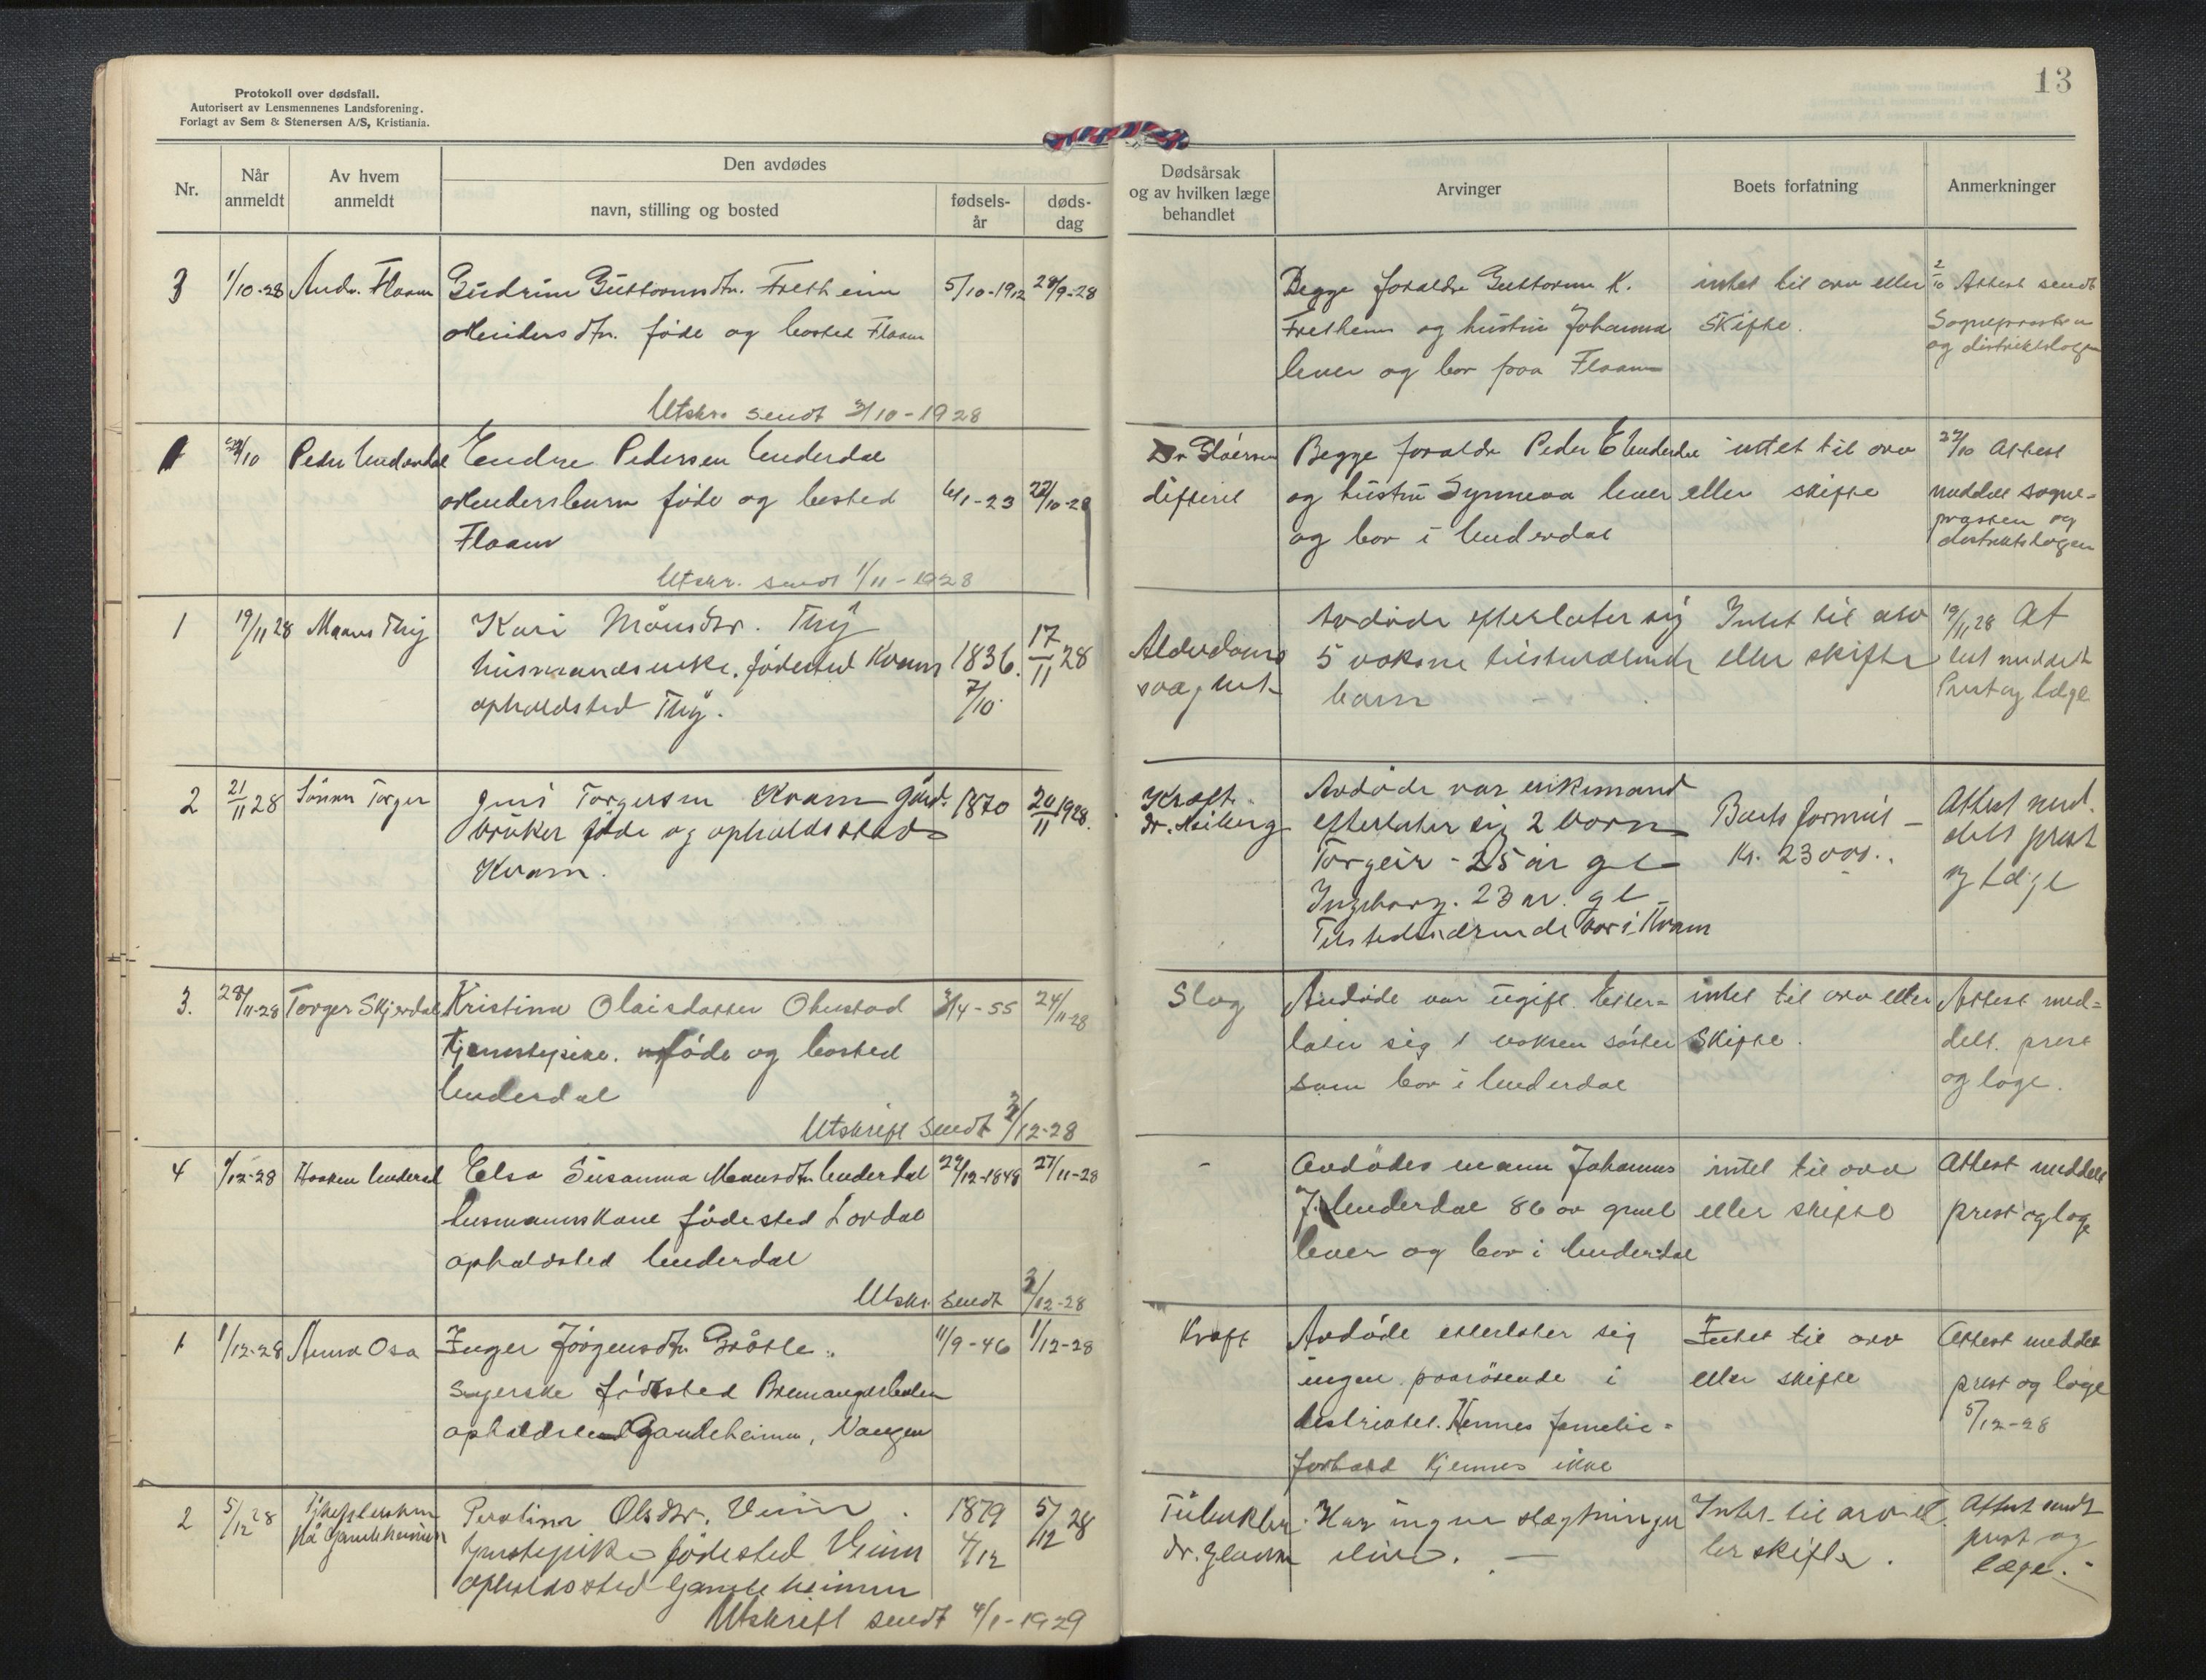 Protokoll over dødsfall.
Autorisert av Lensmennenes Landsforening.
Forlagt av Sem & Stenersen A/S, Kristiania.
13
Nr.
Når anmeldt
Av hvem anmeldt
Den avdødes
navn, stilling og bosted
fødsels-år
døds-dag
Dødsårsak og av hvilken læge behandlet
Arvinger
Boets forfatning
Anmerkninger
3 1/10-28 Andr. Flaam
Gudrun Guttormsdtr. Fretheim 5/10-1912 28/9-28
føde og bosted Flaam
Begge foraldre Guttorm K.
Fretheim og hustru Johanna
lever og bor paa Flaam
intet til arv eller
skifte.
2/10 Attest sendt
Sogneprasten
og distriktslagen
Utskr. sendt 3/10-1928
Peder Underdal
Endre Pedersen Underdal
føde og bosted 22/10-28
Flaam
difterit
Begge foraldr Peder E Underdal
og hustru Synneva lever
og bor i Underdal
intet til arv
eller skifte
22/10 Attest
meddelt sogne-
prasten og
distriktslagen
Utskr. sendt 1/11-1928
1 19/11 28 Maans Thy
Kari Månsdtr. Thy
husmandsenke. fødested Kvam 1836. 17/11 28
opholdsted Thy. 7/10
Alderdoms
svaghet
Avdøde efterlater sig
5 voksne tilstedværende
barn
Intet til arv
eller skifte
19/11 28 At
test meddelt
Prest og læge
2 21/11 28 Sønnen Torger
Jens Torgersen Kvam gård- 1870 20/11 1928.
bruker føde og opholdssted
Kvam.
Kræft.
Avdøde var enkemand
efterlater sig 2 born
Torgeir - 25 år gl
Ingeborg. 23 år. gl
Tilstedværende bor i Kvam
Boets formue
Kr. 23000..
Attest med
delt prest
og læge
3. 28/11-28 Torger Skjerdal
Kristina Olaisdatter 24/11-28
Tjenestepike. føde og bosted
Underdal
Slag
Avdøde var ugift. Efter-
later sig 1 voksen søster
som bor i Underdal
intet til arv eller
skifte.
Attest med-
delt. prest
og lage.
Utskrift sendt 3/12-28
4 1/12-28 Haaken Underdal
Elsa Susanna Maansdtr. Underdal 27/11-28
husmannskone fødested Lærdal
opholdsted Underdal
-
Avdødes mann Johannes
J. Underdal 86 aar gamel
lever og bor i Underdal
intet til arv
eller skifte
Attest meddelt
prest og lage
Utskr. sendt 3/12-28
1 1/12-28 Anna Osa
Inger Jörgensdtr. Grötle 11/9-46 1/12-28
Syerske fødested
opholdssted Gamleheimen, Vangen
Kræft
Avdøde etterlater sig
ingen paarörende i
distriktet. Hennes familie-
forhold kjennes ikke
Intet til arv
eller skifte
Attest meddelt
prest og läge
5/12-28
2 5/12 28 på Gamleheimen
Perolina Olsdtr. Veum 1879 5/12 28
tjenestepike fødested Veum 4/12
opholdssted Gamleheimen
Har ingen slægtninger
ilive.
Intet til arv el
ler skifte.
Attest sendt
prest og
læge.
Utskrift sendt 4/1-1929